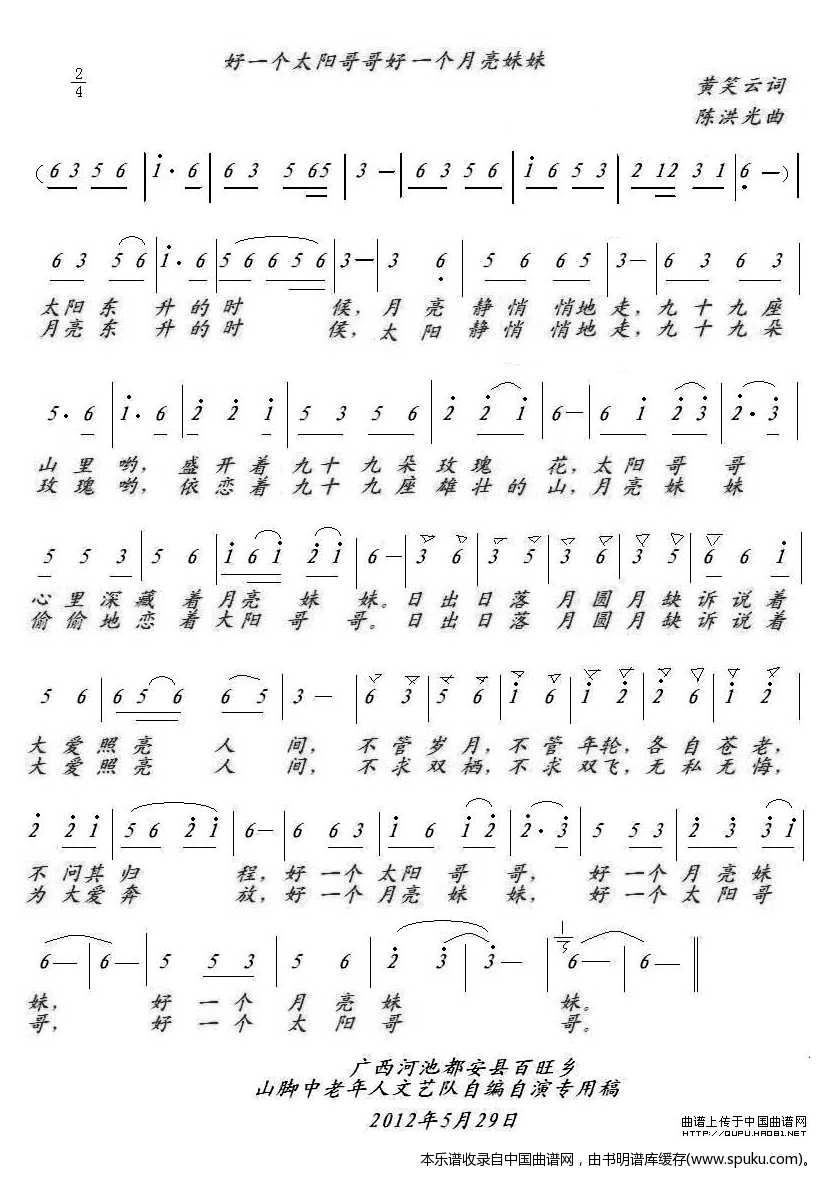 好一个太阳哥哥好一个月亮妹妹
2/4
黄笑云词
陈洪光曲
(6356|1·6|63 565|3—|6356|1653|2123 1|6—)|
63 56|1·6|56656|3—|3 6|56 65|3—|63 63|
太阳东升的时候,月亮静悄悄地走,九十九座
月亮东升的时候,太阳静悄悄地走,九十九朵
5·6|1·6|2 21|53 56|2 21|6—|61 23|2·3|
山里哟,盛开着九十九朵玫瑰花,太阳哥哥
玫瑰哟,依恋着九十九座雄壮的山,月亮妹妹
5 53|56|161 21|6—|3 6|3 5|3 6|3 5|6 61|
心里深藏着月亮妹妹。日出日落月圆月缺诉说着
偷偷地恋着太阳哥哥。日出日落月圆月缺诉说着
5 6|656|6 65|3—|6 3|5 6|1 6|1 2|2 6|1 2|
大爱照亮人间,不管岁月,不管年轮,各自苍老,
大爱照亮人间,不求双栖,不求双飞,无私无悔,
2 21|56 21|6—|6 663|56 12|2·3|5 53|23 3|
不问其归程,好一个太阳哥哥,好一个月亮妹
为大爱奔放,好一个月亮妹妹,好一个太阳哥
6—|6—|5 53|5 6|2 3|3—|6—|6—‖
妹,好一个月亮妹妹。
哥,好一个太阳哥哥。
广西河池都安县百旺乡
山脚中老年人文艺队自编自演专用稿
2012年5月29日
曲谱上传于中国曲谱网
HTTP://QUPU.HAO81.NET
本乐谱收录自中国曲谱网，由书明谱库缓存(www.spuku.com)。